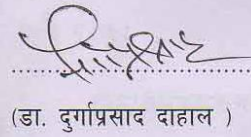 (डा. दुर्गाप्रसाद दाहाल )